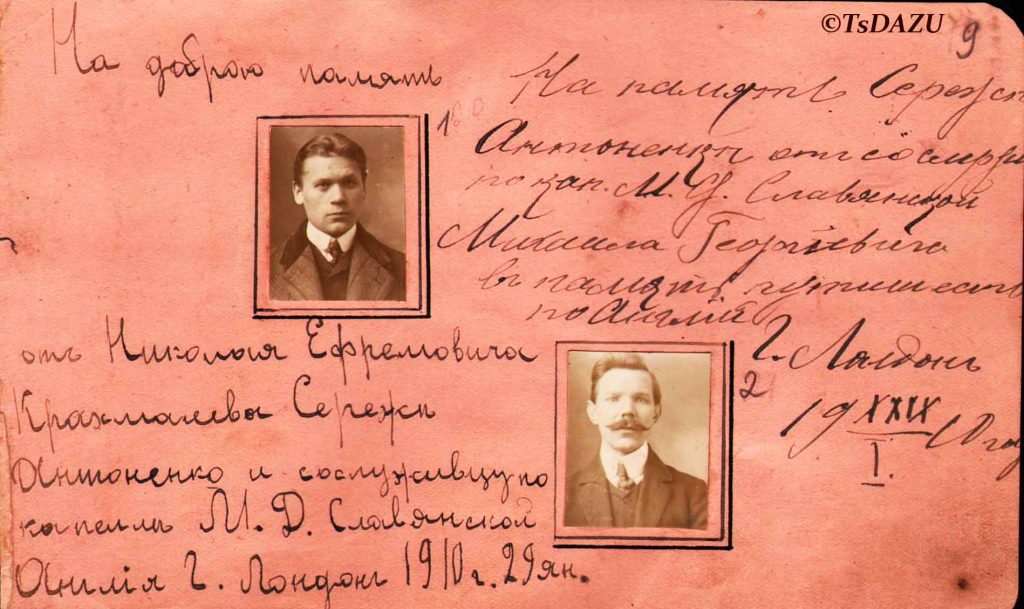 ©TsDAZU
9
На доброю память
1
отъ Николая Ефремовича
Крахмалева Сережи
Антоненко и сослуживцу по
капеллъ М. Д. Славянской
Англія Г. Лондонъ 1910 г. 29 ян.
На память
Антоненкъ отъ
по кап. М. Д. Славянской
Михаила Георгіевича
въ память
по Англій
Г. Лондонъ
2
19 XXIX 10
I.